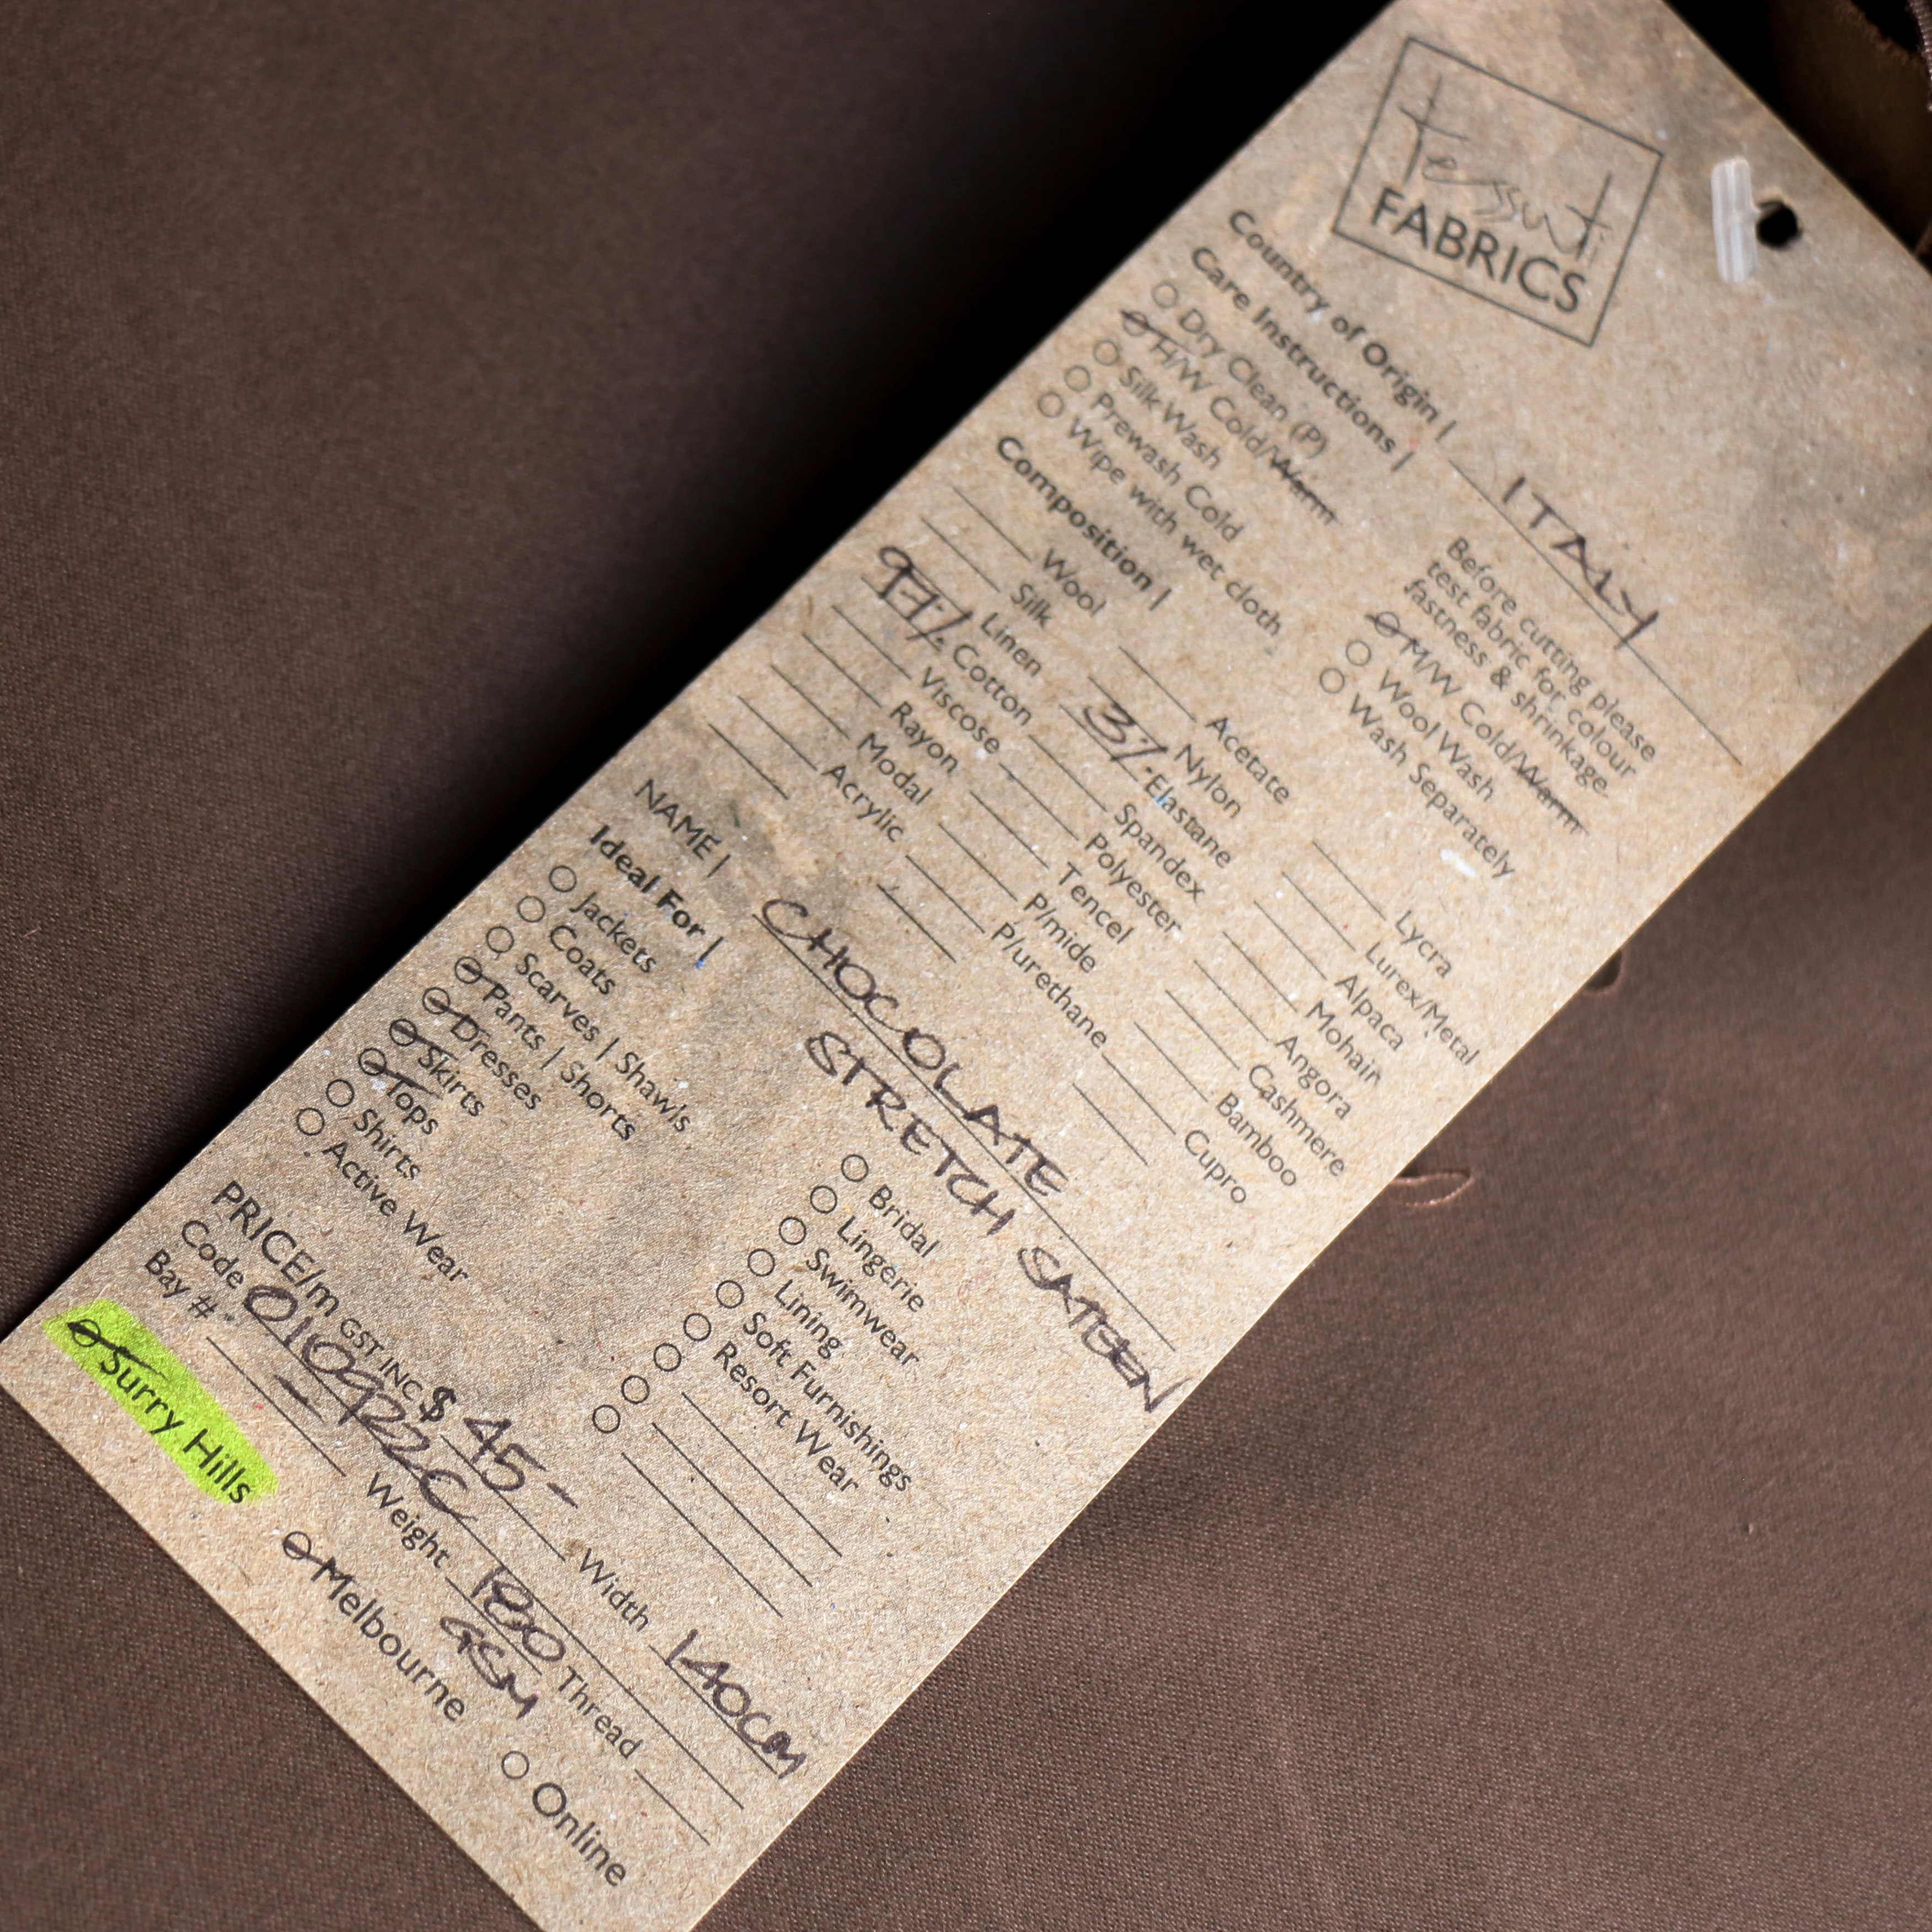 tessuti
FABRICS
Country of Origin | ITALY
Care Instructions |
Before cutting please
test fabric for colour
fastness & shrinkage.
Dry Clean (P)
H/W Cold/Warm
M/W Cold/Warm
Silk Wash
Wool Wash
Prewash Cold
Wash Separately
Wipe with wet cloth
Composition |
Wool Acetate Lycra
Silk Nylon Lurex/Metal
Linen 3% Elastane Alpaca
97% Cotton Spandex Mohair
Viscose Polyester Angora
Rayon Tencel Cashmere
Modal P/mide Bamboo
Acrylic P/urethane Cupro
NAME | CHOCOLATE
STRETCH SATEEN
Ideal For |
Jackets Bridal
Coats Lingerie
Scarves | Shawls Swimwear
Pants | Shorts Lining
Dresses Soft Furnishings
Skirts Resort Wear
Tops
Shirts
Active Wear
PRICE/m GST INC $ 45- Width 140CM
Code 010922C Weight 180 GSM
Bay # - Thread
Surry Hills Melbourne Online